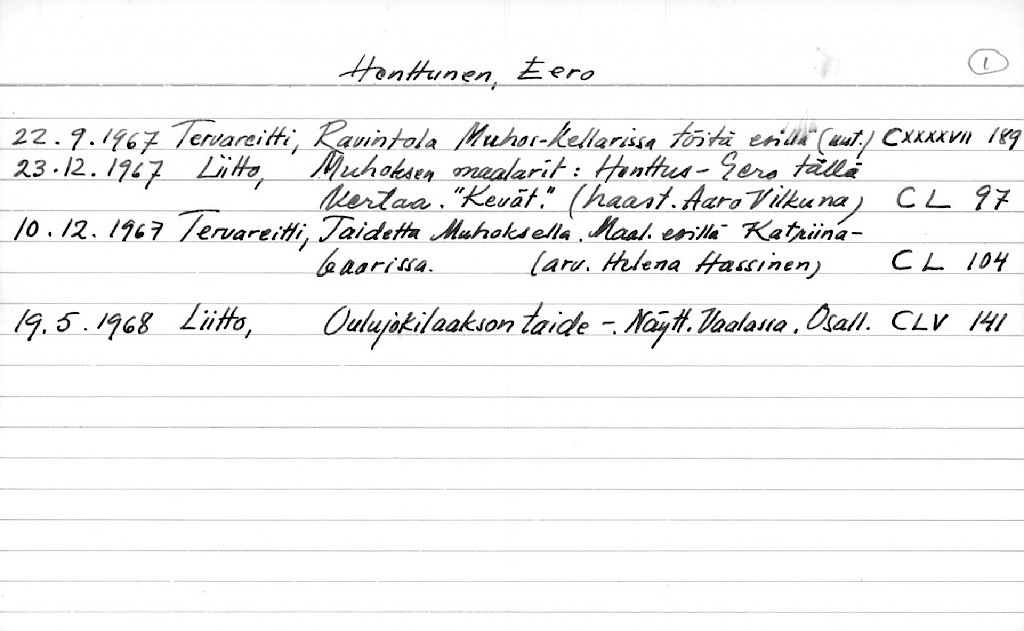 Honttunen, Eero 1
22.9.1967 Tervareitti, Ravintola Muhos-Kellarissa töitä esillä (uut.) CXXXXVII 189
23.12.1967 Liitto, Muhoksen maalarit: Honttus-Eero tällä
kertaa. "Kevät." (haast. Aaro Vilkuna) CL 97
10.12.1967 Tervareitti, Taidetta Muhoksella. Maal. esillä Katriina-
baarissa. (arv. Helena Hassinen) CL 104
19.5.1968 Liitto, Oulujokilaakson taide -. Näytt. Vaalassa. Osall. CLV 141